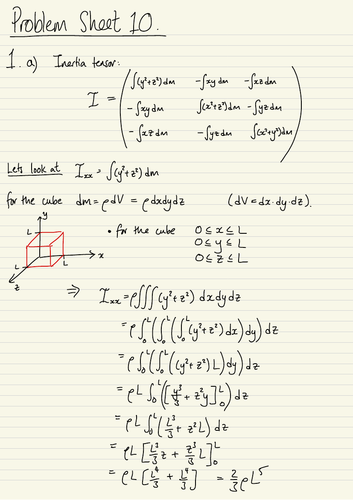 Problem Sheet 10.
1. a) Inertia tensor:
∫(y²+z²)dm -∫xy dm -∫xz dm
I = -∫xy dm ∫(x²+z²)dm -∫yz dm
-∫xz dm -∫yz dm ∫(x²+y²)dm
Lets look at Ixx = ∫(y²+z²)dm
for the cube dm = ρdV = ρdxdydz (dV = dx.dy.dz).
• for the cube 0≤x≤L
0≤y≤L
0≤z≤L
y
L
x
L
L
z
⇒ Ixx = ρ∫∫∫(y²+z²) dxdydz
= ρ∫₀ᴸ(∫₀ᴸ(∫₀ᴸ(y²+z²)dx)dy)dz
= ρ∫₀ᴸ(∫₀ᴸ((y²+z²)L)dy)dz
= ρL∫₀ᴸ([y³/3 + z²y]₀ᴸ)dz
= ρL∫₀ᴸ(L³/3 + z²L)dz
= ρL[L³/3 z + z³/3 L]₀ᴸ
= ρL[L⁴/3 + L⁴/3] = 2/3 ρL⁵